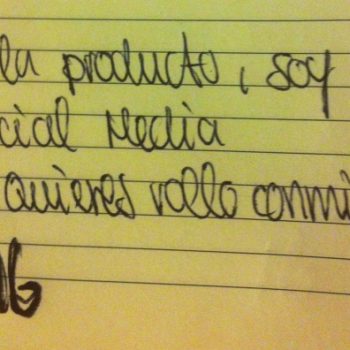 la producto, soy
cial Media
quieres rollo conmi